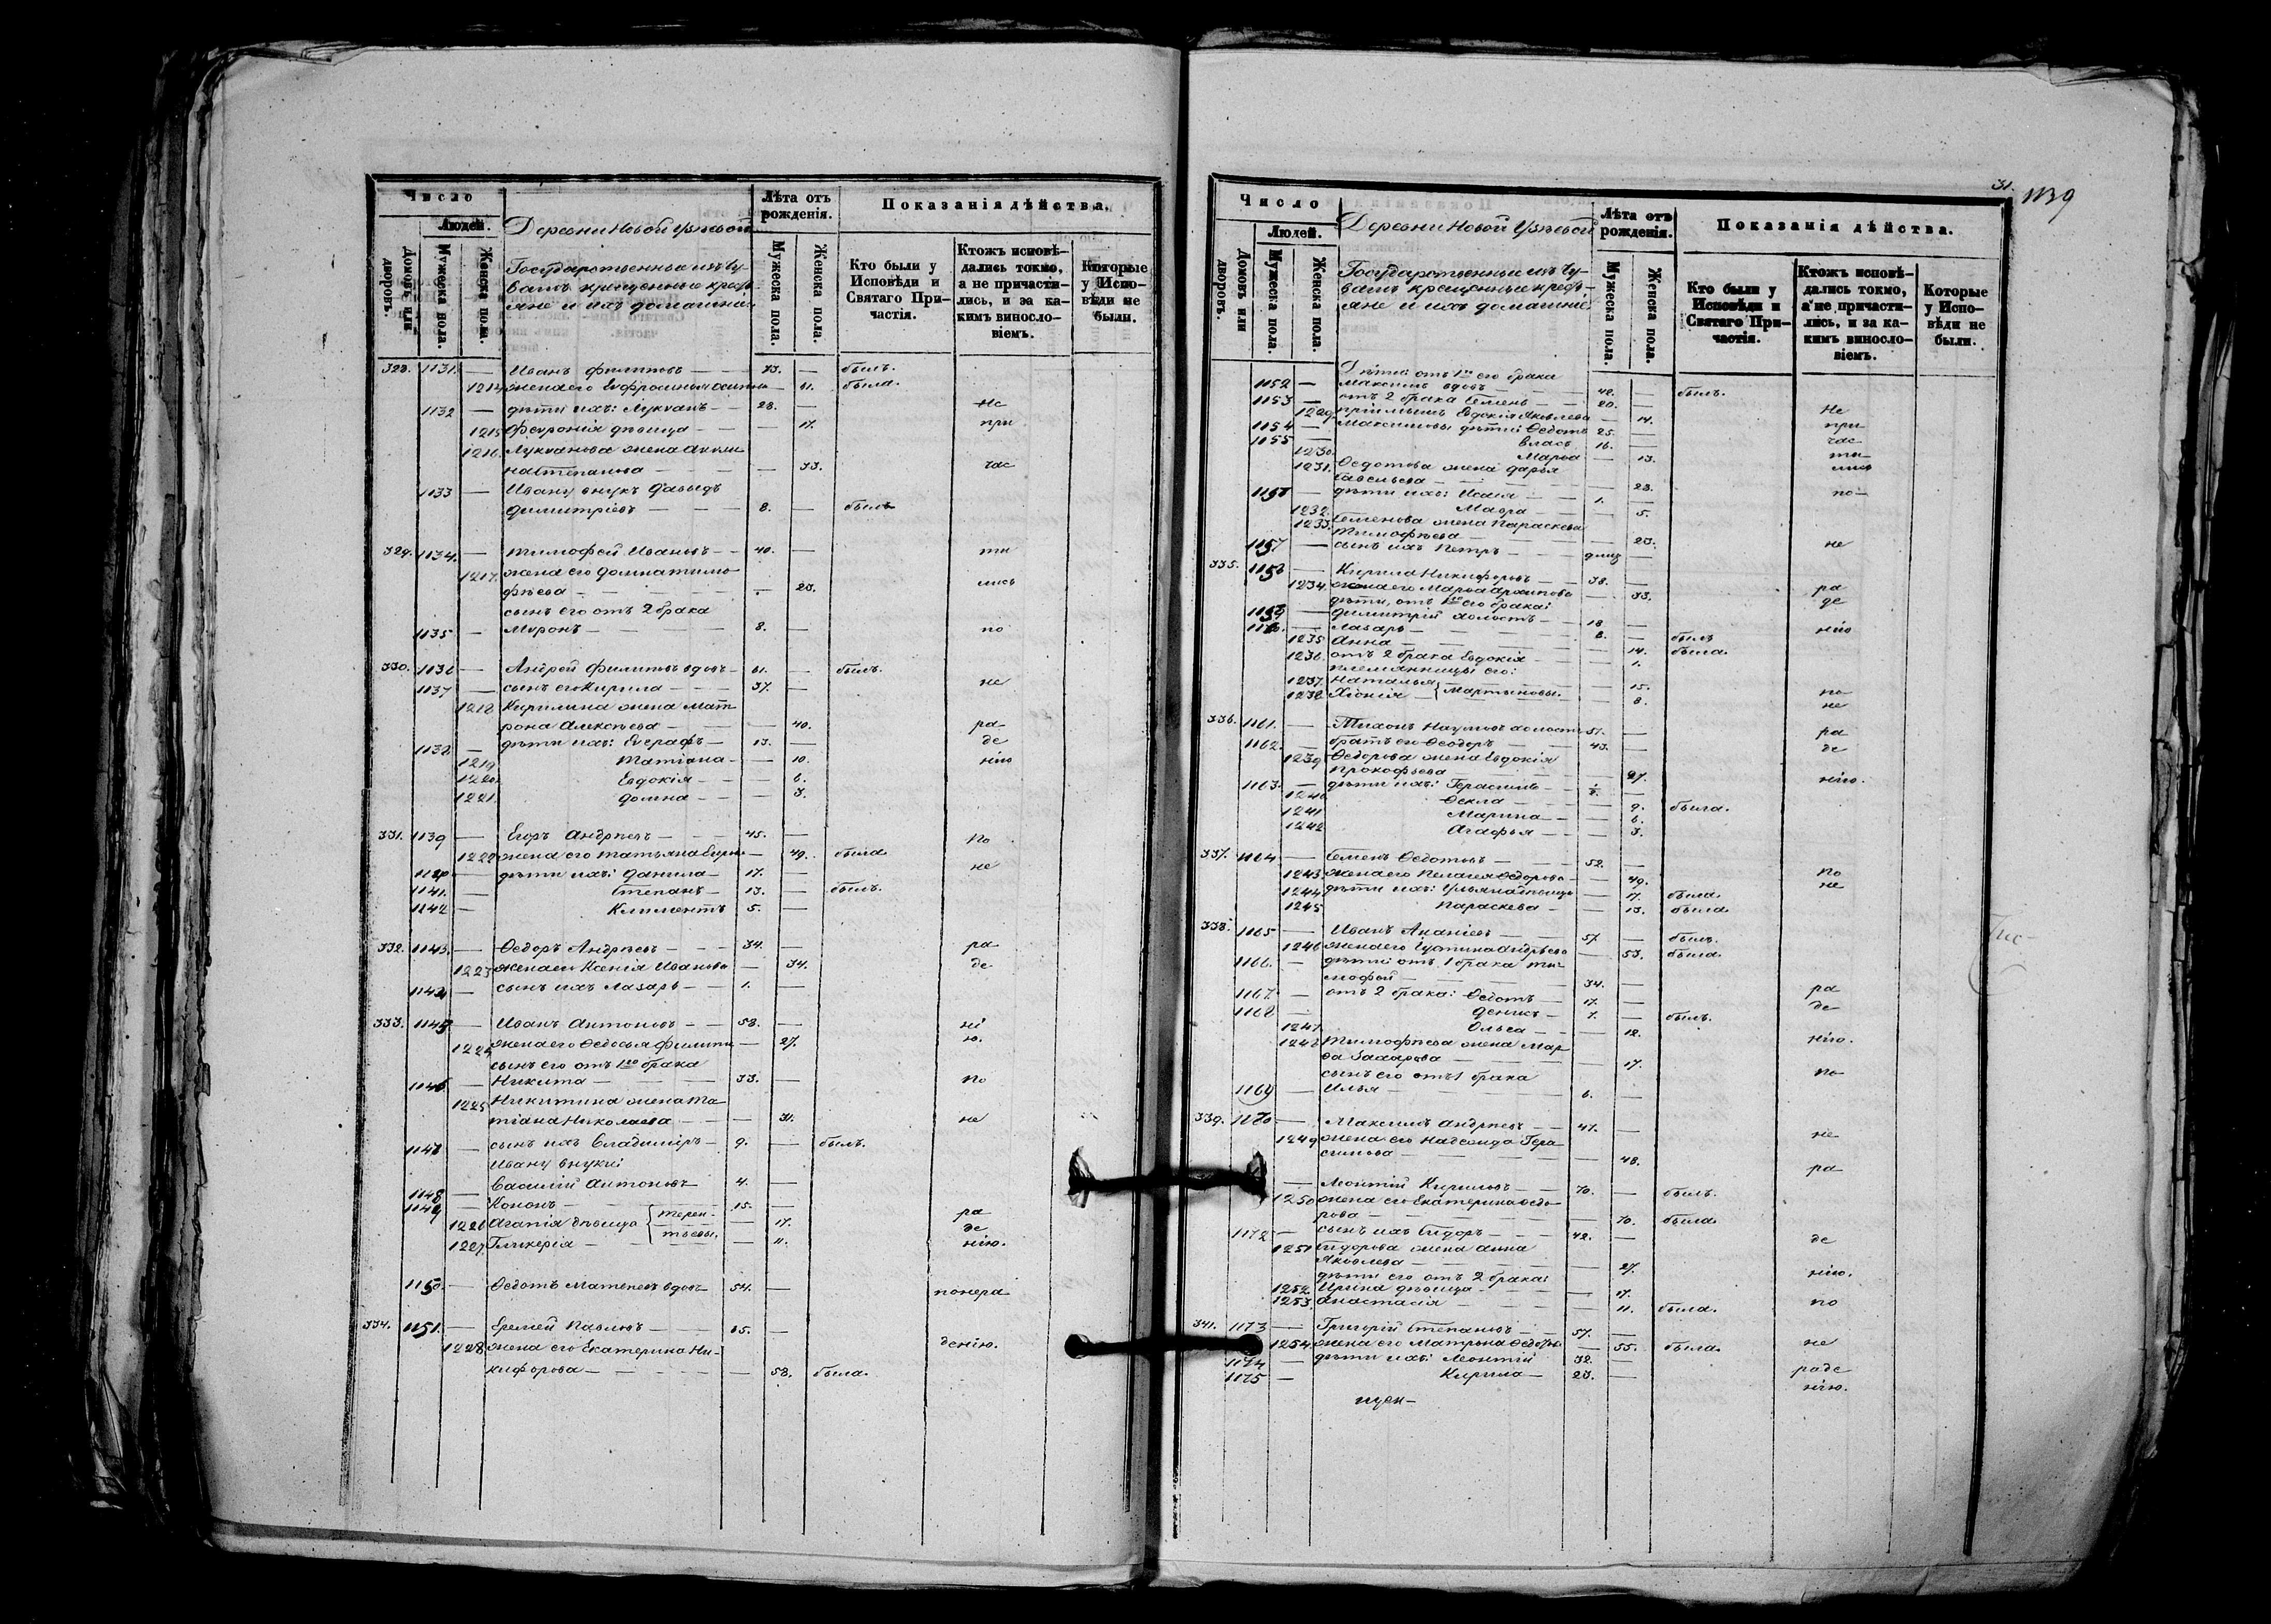 Число
Людей.
Домовъ или дворовъ.
Мужеска пола.
Женска пола.
Деревни Новой Узѣевой
Государственные изъ Чу-
вашъ крещенные кресть-
яне и ихъ домашніе
Лѣта отъ рожденія.
Мужеска пола.
Женска пола.
Показанія дѣйства.
Кто были у Исповѣди и Святаго При-частія.
Ктожъ исповѣ-дались токмо, а не причасти-лись, и за ка-кимъ винословіемъ.
Которые у Испо-вѣди не были.
328. 1131. — Иванъ Филиповъ — 73. — былъ.
1214 жена его Евфросинья — 61. была.
1132 — дѣти ихъ: Лукіанъ — 28. — не
1215 Февронія дѣвица — — 17. при
1216. Лукіанова жена
Степанова — — 33. час
1133 — Ивану внукъ Давыдъ
Димитріевъ — 8. — былъ
329. 1134. — Тимофей Ивановъ — 40. — ти
1217. жена его Домна Тимо-
фѣева — — 23. лись
сынъ его отъ 2 брака
1135 — Миронъ — 8. — по
330. 1136 — Андрей Филиповъ вдовъ — 61. — былъ.
1137 — сынъ его Кирила — 37. — не
1218 Кирилина жена Мат-
рона Алексѣева — — 40. ра-
1138 — дѣти ихъ: Евграфъ — 13. — де
1219 Татіана — — 10. нію
1220. Евдокія — — 6.
1221. Домна — — 3.
331. 1139 — Егоръ Андреевъ — 45. — По
1222 жена его Татьяна — 49. была не
1140 — дѣти ихъ: Данила — 17. —
1141. — Степанъ — 13. — былъ.
1142 — Климентъ 5. —
332. 1143. — Ѳедоръ Андреевъ — 34. — ра
1223 жена его Ксенія Иванова — 34. де
1144 — сынъ ихъ Лазарь — 1. —
333. 1145 — Иванъ Антоновъ — 58. — ні
1224 жена его Ѳедосья Филипи — 27. ю.
сынъ его отъ 1го брака
1146 — Никита — 33. — По
1225 Никитина жена Та-
тіана Николаева — — 31. не
1147 — сынъ ихъ Владиміръ — 9. — былъ.
Ивану внуки
1148 — Василій Антоновъ 4. —
1149 — Кононъ — 15. —
1226 Агапія дѣвица { Терен- — 17. ра де
1227 Гликерія — тьевы. — 11. нію.
1150. — Ѳедотъ Матвеевъ вдовъ 54. — понера
334. 1151. — Еремей Павловъ — 65. —
1228 жена его Екатерина Ни- денію.
кифорова — — 58. была.
31.
1139
Число
Людей.
Домовъ или дворовъ.
Мужеска пола.
Женска пола.
Деревни Новой Узѣевой
Государственные изъ Чу-
вашъ крещенные кресть-
яне и ихъ домашніе
Лѣта отъ рожденія.
Мужеска пола.
Женска пола.
Показанія дѣйства.
Кто были у Исповѣди и Святаго При-частія.
Ктожъ исповѣ-дались токмо, а не причасти-лись, и за ка-кимъ винословіемъ.
Которые у Испо-вѣди не были.
Дѣти отъ 1го его брака
1152 — Максимъ вдовъ — 42. — былъ.
1153 — отъ 2 брака Семенъ — 20. — Не
1229 пріимышъ Евдокія Яковлева — 14. при
1154 — Максимовы дѣти: Ѳедотъ 25. — час
1155 — Власъ 16. —
1230 Марѳа — 13. ти
1231. Ѳедотова жена Дарья лись
Савельева — — 23.
1156 — дѣти ихъ: Исаія — 1. — по-
1232. Мавра — — 5.
1233. Семенова жена Параскева
Тимофѣева — — 23. не
1157 — сынъ ихъ Петръ —
335. 1158 — Кирила Никифоровъ — 38. —
1234. жена его Марѳа Архипова — 33. ра
дѣти, отъ 1го его брака: де
1159 — Димитрій холостъ — 18 —
1160. — Лазарь — 8. — былъ нію
1235 Анна — — 14. была.
1236. отъ 2 брака Евдокія — — 1.
племянницы его:
1237. Наталья — { Мартыновы. — 15. по-
1238 Хіонія — — 8. не
336. 1161. — Тихонъ Наумовъ холостъ 51. — ра
1162. — братъ его Ѳеодоръ — 43. — де
1239 Ѳедорова жена Евдокія
Прокофьева — — 27. нію.
1163. — дѣти ихъ: Герасимъ —
1240 Ѳекла — — 9. была.
1241 Марина — — 6.
1242 Агафья — — 3.
337. 1164 — Семенъ Ѳедотовъ — 52. —
1243 жена его Пелагея Ѳедорова — 49. По
1244 дѣти ихъ: Ульяна дѣвица — 17. была. не
1245 Параскева — — 13. была
338. 1165 — Иванъ Ананіевъ — 57 — былъ.
1246 жена его Устина Андреева — 53. была.
1166. — дѣти отъ 1 брака Ти-
мофей — 34. — ра
1167. — отъ 2 брака: Ѳедотъ — 17. — де
1168 — Денисъ — 7. — былъ.
1247. Ольга — — 12. нію.
1248 Тимофеева жена Мар-
ѳа Захарова — — 17.
сынъ его отъ 1 брака по
1169 — Илья — 6. —
339. 1170 — Максимъ Андреевъ — 47. — не
1249 жена его Надежда Гера-
симова — — 48. ра
— Леонтій Кириловъ — 70. — былъ.
1250 жена его Екатерина Ѳедо-
рова — — 70. была.
1172 — сынъ ихъ Сидоръ — 42. — де
1251 Сидорова жена Анна
Яковлева — — 27. нію.
дѣти его отъ 2 брака:
1252. Ирина дѣвица — — 17.
1253. Анастасія — — 11. была. по
341. 1173 — Григорій Степановъ — 57. —
1254. жена его Матрона Ѳедорова — 55. была. не
1174 — дѣти ихъ: Леонтій 32. — раде
1175 — Кирила — 23. — нію.